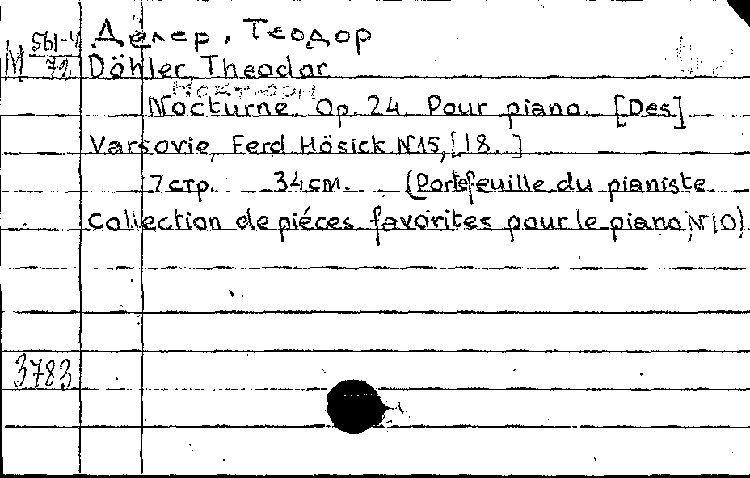 М 561-4/72
Делер, Теодор
Döhler, Theodor
Ноктюрн
Nocturne. Op. 24. Pour piano. [Des]
Varsovie, Ferd Hösick N15, [18..]
7 стр. 34 см. (Portefeuille du pianiste
Collection de piéces favorites pour le piano, N10)
3783